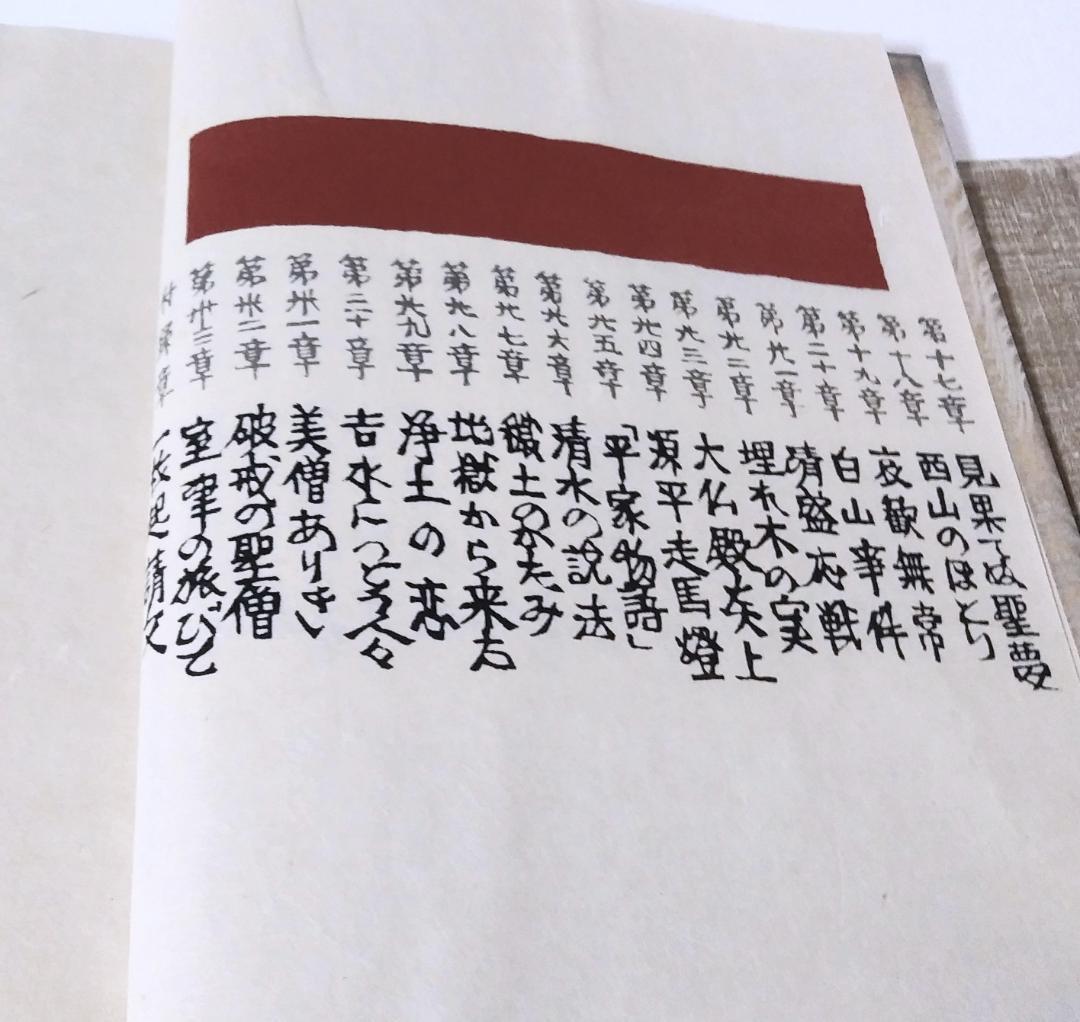 第十七章 見果てぬ聖夢
第十八章 西山のほとり
第十九章 哀歓無常
第二十章 白山事件
第廿一章 清盛応戦
第廿二章 埋れ木の実
第廿三章 大仏殿炎上
第廿四章 源平走馬燈
第廿五章 「平家物語」
第廿六章 清水の説法
第廿七章 穢土のかたみ
第廿八章 地獄から来た
第廿九章 浄土の恋
第三十章 吉水につどう人々
第卅一章 美僧ありき
第卅二章 破戒の聖僧
第卅三章 室津の旅びと
章 起請文